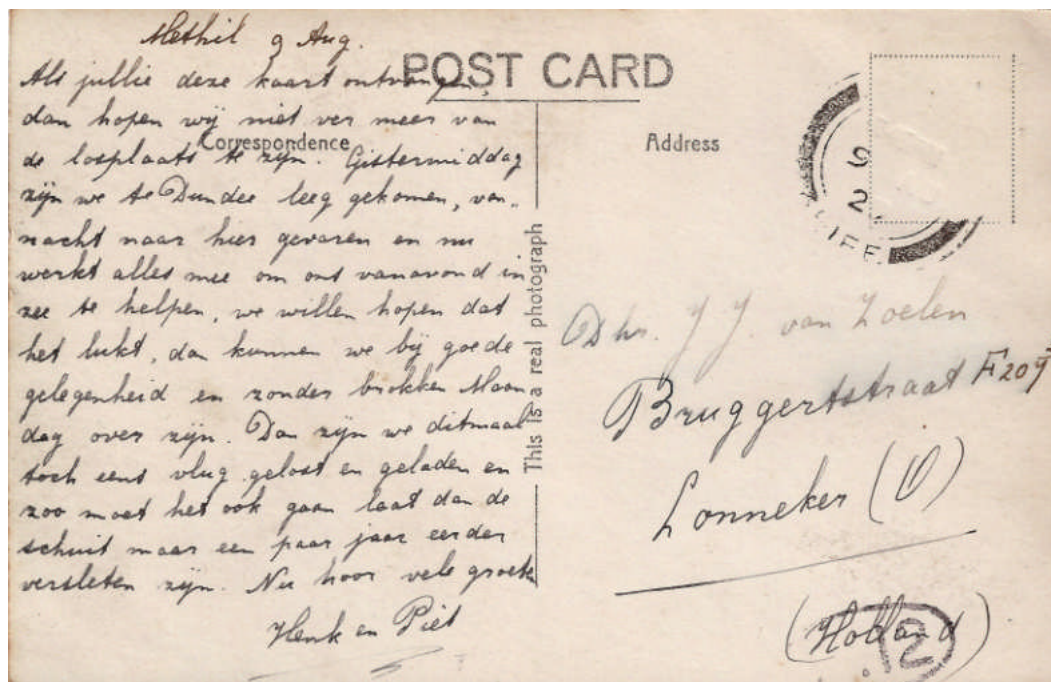 Methil 9 Aug.
POST CARD
Als jullie deze kaart ontvangen,
dan hopen wij niet ver meer van
Correspondence
de losplaats te zijn. Gistermiddag
zijn we te Dundee leeg gekomen, van-
nacht naar hier gevaren en nu
werkt alles mee om ons vanavond in
zee te helpen, we willen hopen dat
het lukt, dan kunnen we bij goede
gelegenheid en zonder brokken Maan
dag over zijn. Dan zijn we ditmaal
toch eens vlug gelost en geladen en
zoo moet het ook gaan laat dan de
schuit maar een paar jaar eerder
versleten zijn. Nu hoor vele groeten
Henk en Piet
This is a real photograph
Address
9
2
IFF.
Dhr. J J. van Zoelen
Bruggertstraat F209
Lonneker (O)
(Holland)
2